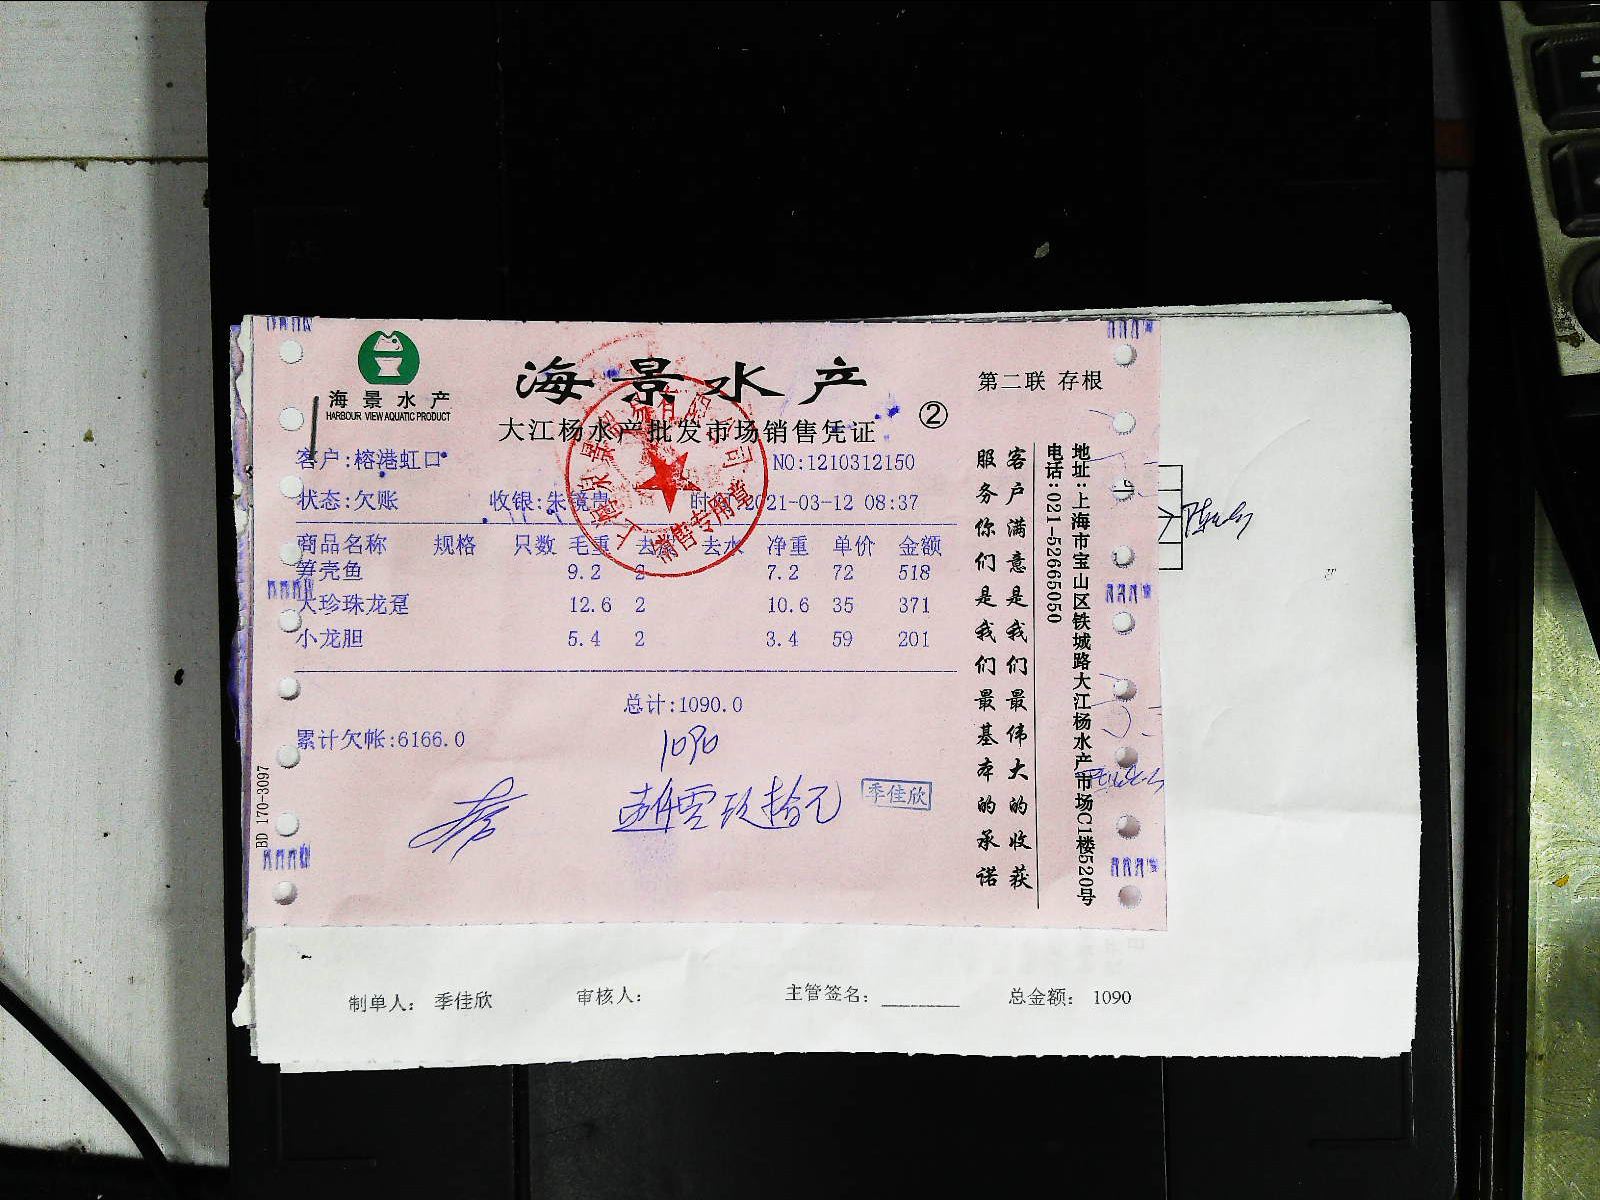 海景水产
HARBOUR VIEW AQUATIC PRODUCT
海景水产
大江杨水产批发市场销售凭证
②
第二联 存根
客户:榕港虹口
NO:1210312150
状态:欠账 收银:朱镜贵 2021-03-12 08:37
商品名称 规格 只数 毛重 去水 净重 单价 金额
笋壳鱼 9.2 2 7.2 72 518
大珍珠龙趸 12.6 2 10.6 35 371
小龙胆 5.4 2 3.4 59 201
总计:1090.0
累计欠帐:6166.0
1090
零玖拾元
季佳欣
销售专用章
客户满意是我们最伟大的收获
服务你们是我们最基本的承诺
地址:上海市宝山区铁城路大江杨水产市场C1楼520号
电话:021-52665050
BD 170-3097
制单人: 季佳欣 审核人: 主管签名: 总金额: 1090